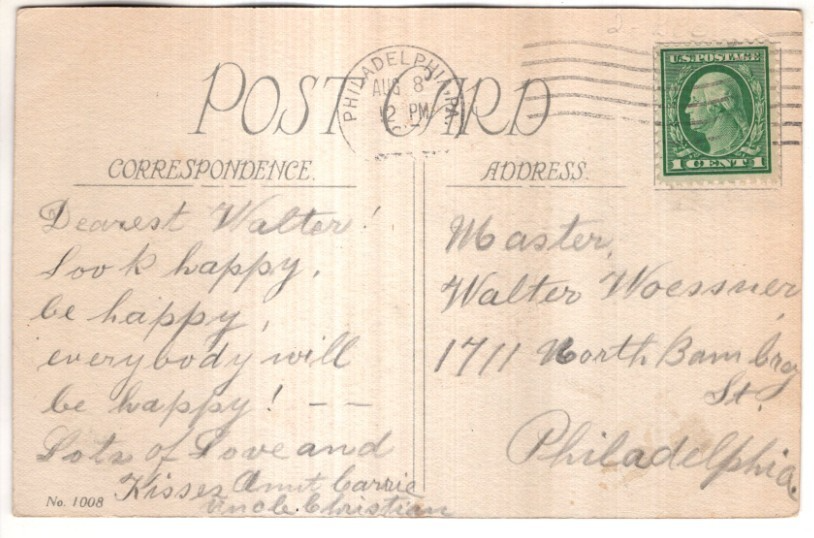 POST CARD
PHILADELPHIA, PA.
AUG 8
12 PM
U.S. POSTAGE
1 CENT 1
CORRESPONDENCE.
Dearest Walter!
Look happy,
be happy,
everybody will
be happy! — —
Lots of Love and
Kisses Aunt Carrie
Uncle Christian
No. 1008
ADDRESS.
Master,
Walter Woessner,
1711 North Bambrey
St.
Philadelphia.